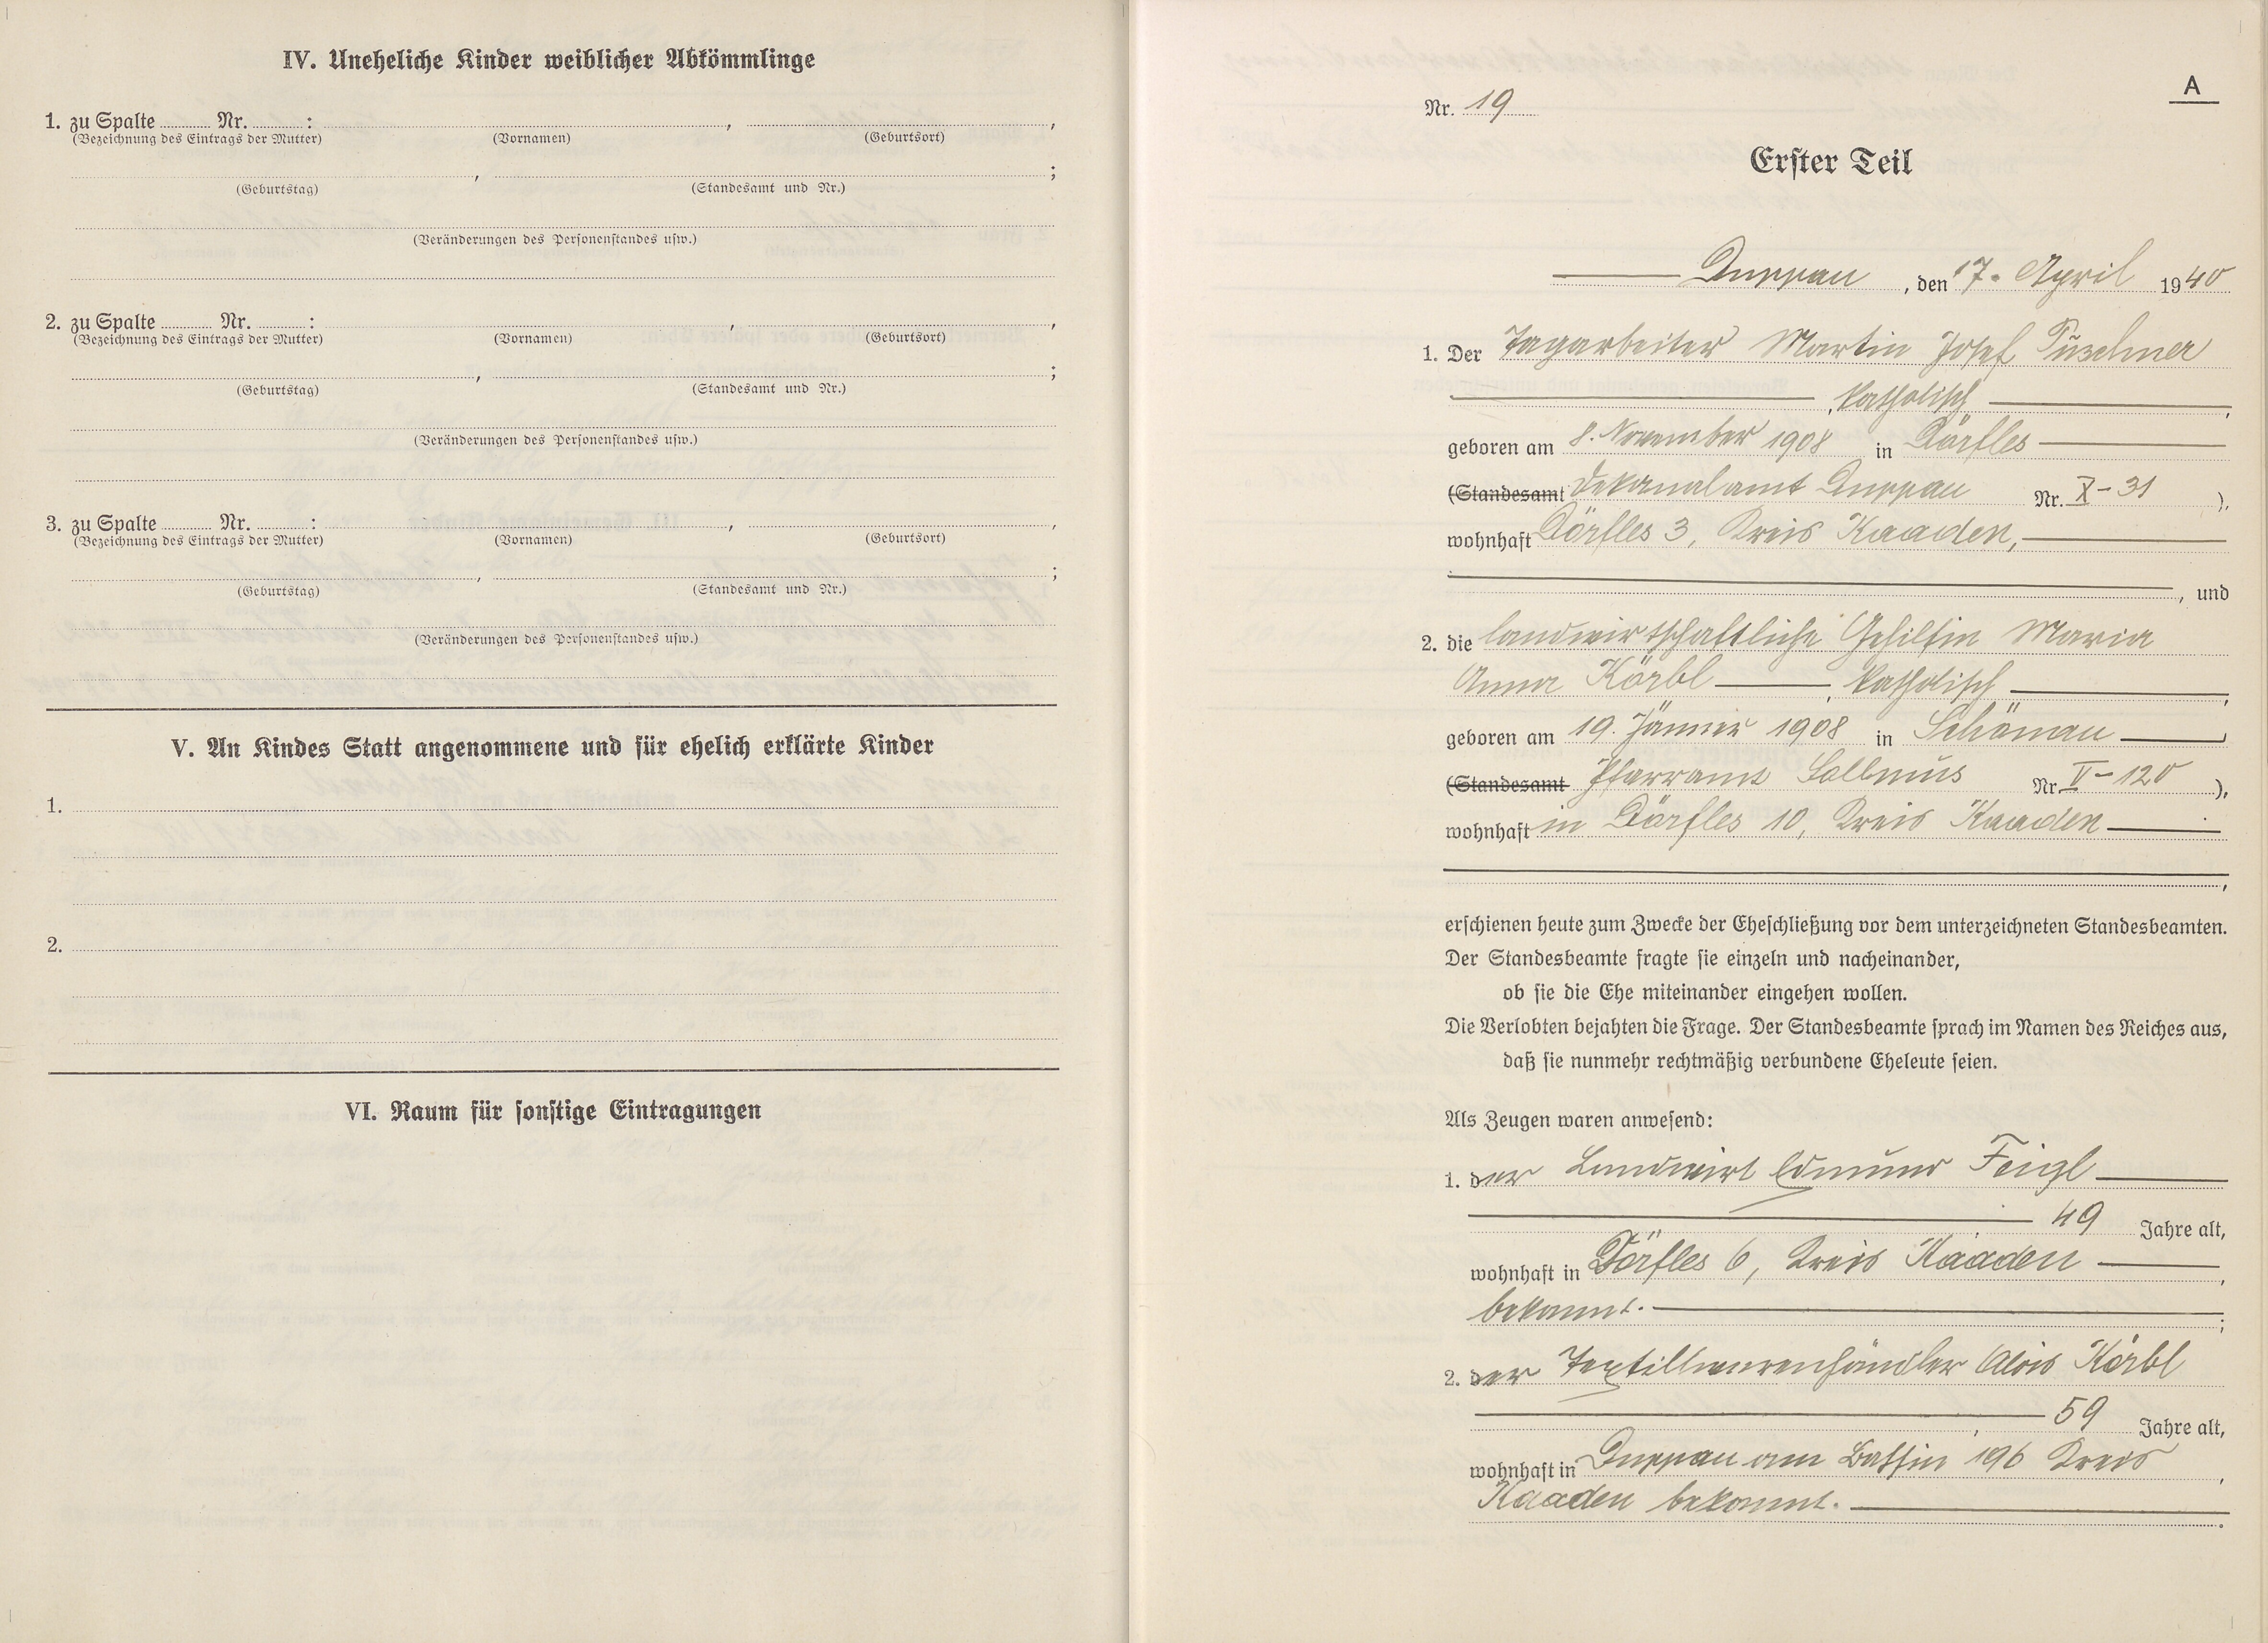 IV. Uneheliche Kinder weiblicher Abkömmlinge
1. zu Spalte ........ Nr. ........ : , ,
(Bezeichnung des Eintrags der Mutter) (Vornamen) (Geburtsort)
, ;
(Geburtstag) (Standesamt und Nr.)
(Veränderungen des Personenstandes usw.)
2. zu Spalte ........ Nr. ........ : , ,
(Bezeichnung des Eintrags der Mutter) (Vornamen) (Geburtsort)
, ;
(Geburtstag) (Standesamt und Nr.)
(Veränderungen des Personenstandes usw.)
3. zu Spalte ........ Nr. ........ : , ,
(Bezeichnung des Eintrags der Mutter) (Vornamen) (Geburtsort)
, ;
(Geburtstag) (Standesamt und Nr.)
(Veränderungen des Personenstandes usw.)
V. An Kindes Statt angenommene und für ehelich erklärte Kinder
1.
2.
VI. Raum für sonstige Eintragungen
A
Nr. 19
Erster Teil
Duppau, den 17. April 1940
1. Der Tagarbeiter Martin Josef Püschner
, katholisch ,
geboren am 8. November 1908 in Dörfles
(Standesamt Dekanalamt Duppau Nr. X-31 ),
wohnhaft Dörfles 3, Kreis Kaaden,
, und
2. die landwirtschaftliche Gehilfin Maria
Anna Körbl , katholisch ,
geboren am 19. Jänner 1908 in Schönau
(Standesamt Pfarramt Sollmus Nr. V-120 ),
wohnhaft in Dörfles 10, Kreis Kaaden
,
erschienen heute zum Zwecke der Eheschließung vor dem unterzeichneten Standesbeamten.
Der Standesbeamte fragte sie einzeln und nacheinander,
ob sie die Ehe miteinander eingehen wollen.
Die Verlobten bejahten die Frage. Der Standesbeamte sprach im Namen des Reiches aus,
daß sie nunmehr rechtmäßig verbundene Eheleute seien.
Als Zeugen waren anwesend:
1. der Landwirt Edmund Feigl
49 Jahre alt,
wohnhaft in Dörfles 6, Kreis Kaaden ,
bekannt. ;
2. der Textillwarenhändler Alois Körbl
, 59 Jahre alt,
wohnhaft in Duppau am Bassin 196 Kreis ,
Kaaden bekannt. .